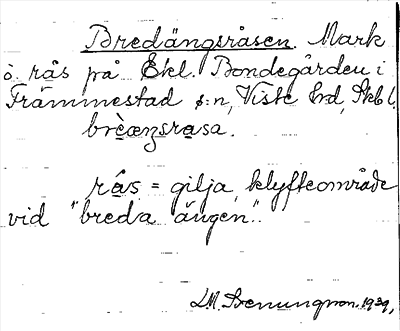 Bredängsråsen. Mark
o. rås på Ekl. Bondegården i
Främmestad s:n, Viste hrd, Skbl.
brèæŋsrasa.
rås = gilja, klyftområde
vid "breda ängen".
1939,